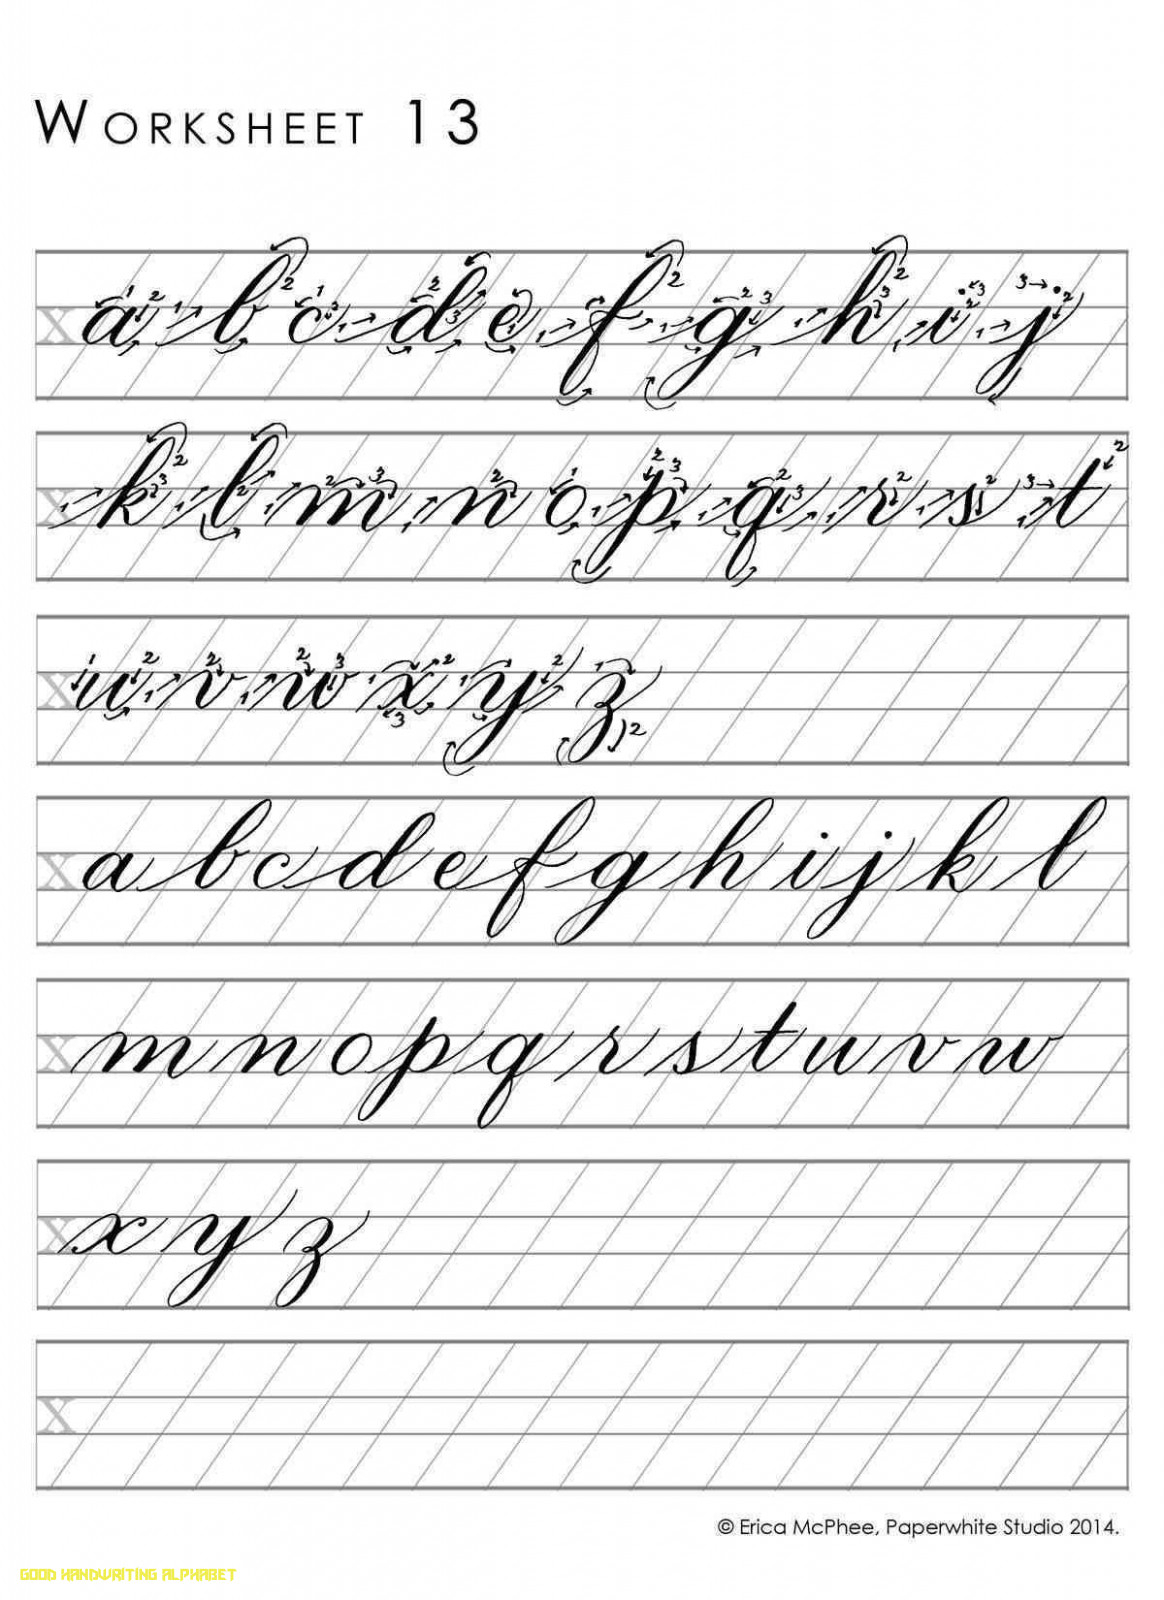 Worksheet 13
x a b c d e f g h i j
x k l m n o p q r s t
x u v w x y z
x a b c d e f g h i j k l
x m n o p q r s t u v w
x x y z
x
© Erica McPhee, Paperwhite Studio 2014.
GOOD HANDWRITING ALPHABET